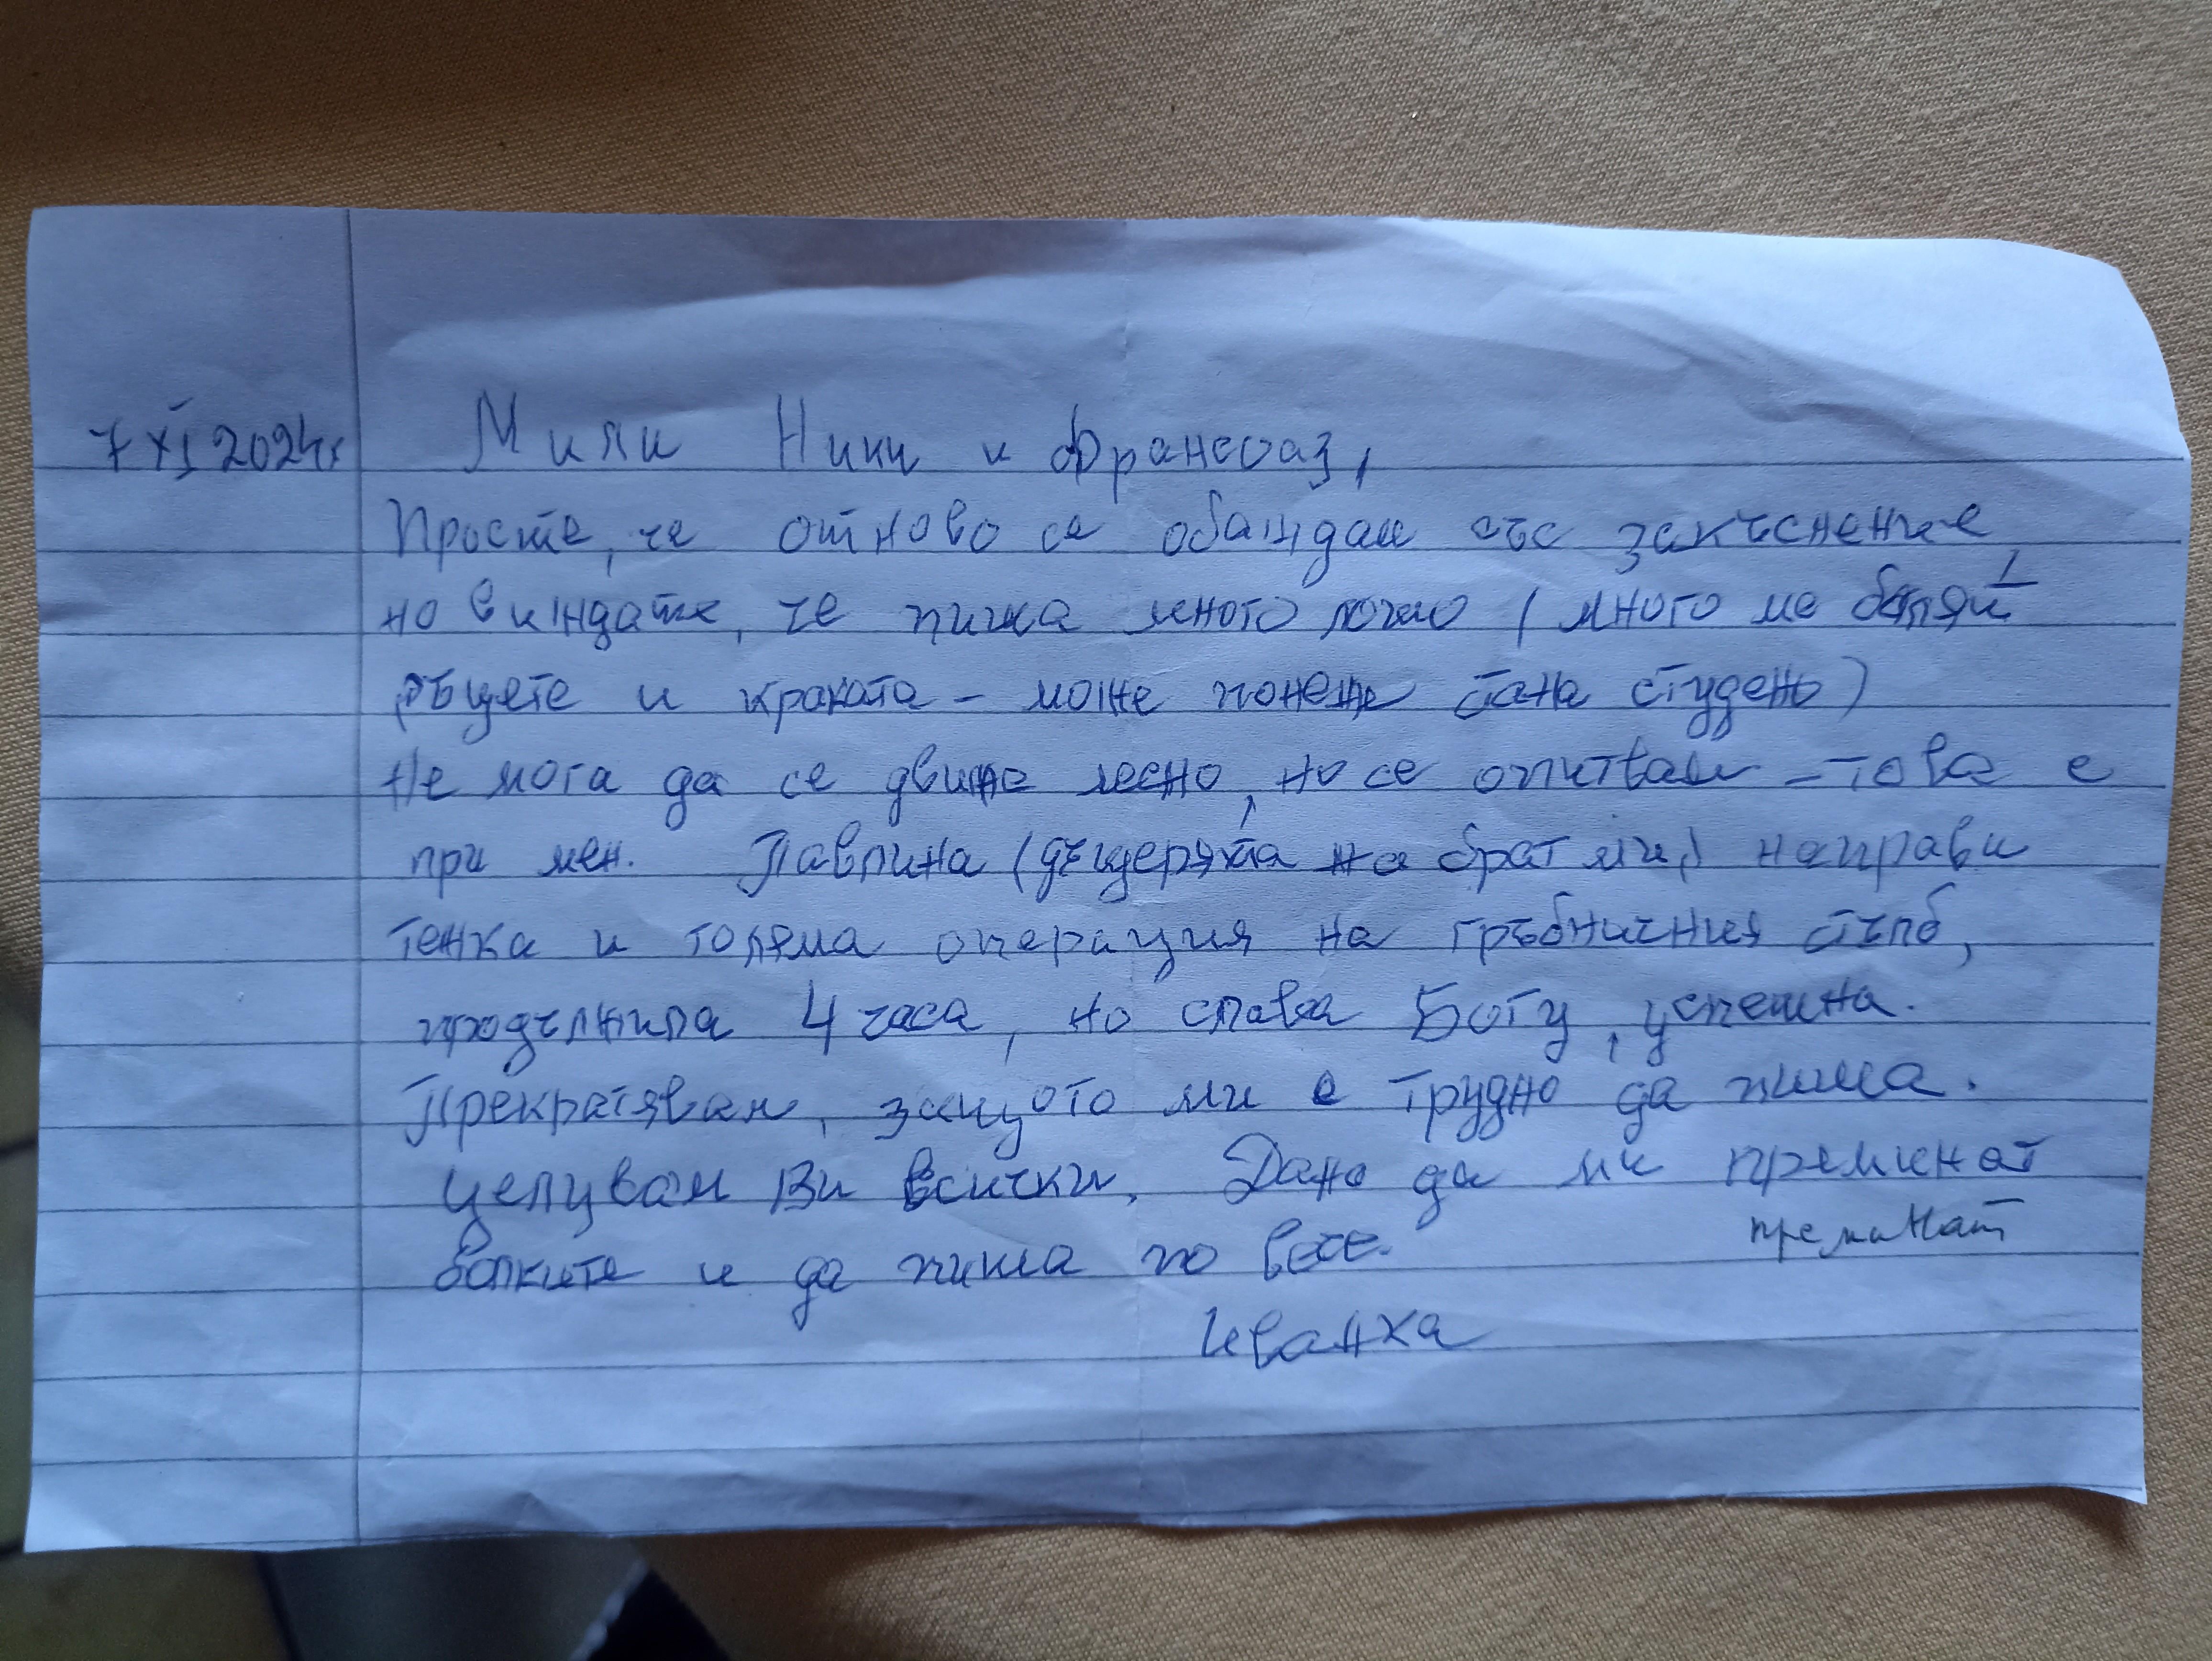 7 XI 2024г
Мили Ники и Франсоаз,
Простете, че отново се обаждам със закъснение
но виждате, че пиша много лошо (много ме болят
ръцете и краката – може понеже стана студено)
Не мога да се движа лесно, но се опитвам – това е
при мен. Павлина (дъщерята на брат ми,) направи
тежка и голяма операция на гръбничния стълб,
продължила 4 часа, но слава Богу, успешна.
Прекратявам, защото ми е трудно да пиша.
Целувам Ви всички. Дано да ми преминат
преминат
болките и да пиша по вече.
Иванка